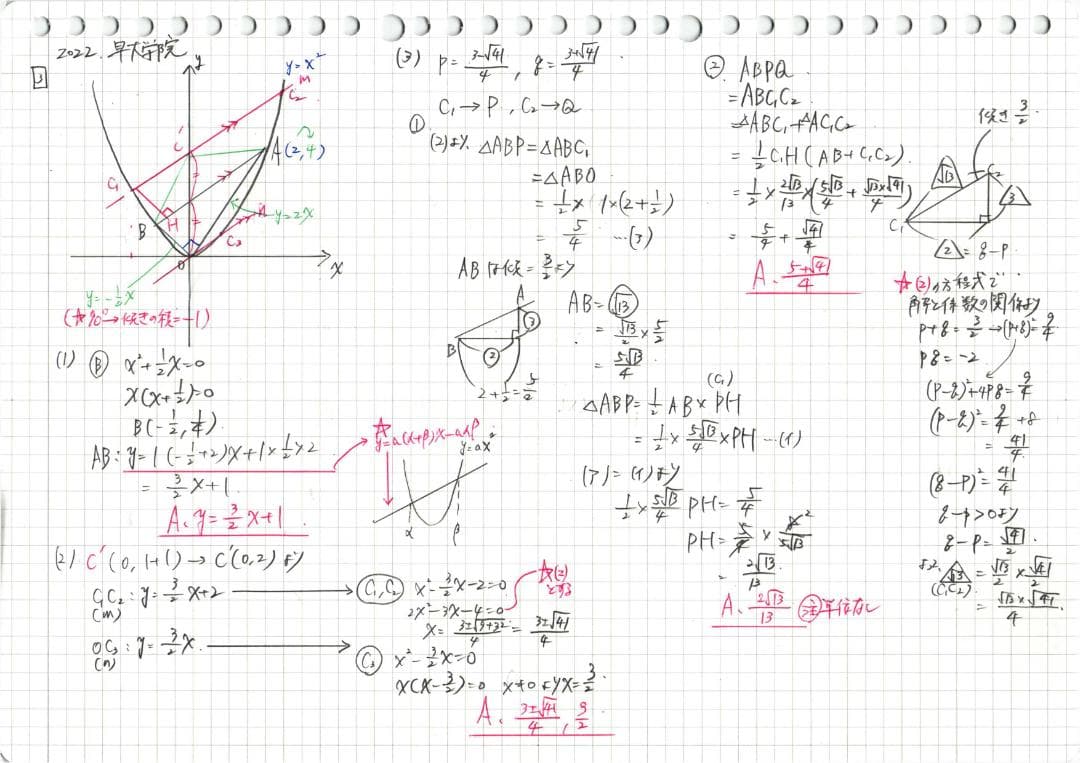 2022. 早大学院
3
y
y=x²
m
C₂
C'
A(2,4)
C₁
B
H
n
y=2x
C₃
O
x
y=-1/2x
(☆90°→傾きの積=-1)
(1) Ⓑ x²+1/2x=0
x(x+1/2)=0
B(-1/2, 1/4)
AB: y=1(-1/2+2)x+1×1/2×2
= 3/2x+1
A、y=3/2x+1
☆
y=a(α+β)x-aαβ
y=ax²
α β
(2) C'(0,1+1)→C'(0,2)より
C₁C₂: y=3/2x+2
(m)
OC₃: y=3/2x
(n)
C₁,C₂ x²-3/2x-2=0
2x²-3x-4=0
☆(2)
とする
x=3±√9+32/4=3±√41/4
C₃ x²-3/2x=0
x(x-3/2)=0 x≠0よりx=3/2
A、3±√41/4, 3/2
(3) p=3-√41/4, q=3+√41/4
C₁→P, C₂→Q
①
(2)より、△ABP=△ABC₁
=△ABO
=1/2×1×(2+1/2)
=5/4 …(ア)
ABは傾き3/2より
A
B
③
②
2+1/2=5/2
AB=√13
=√13/2×5/2
=5√13/4
(C₁)
△ABP=1/2AB×PH
=1/2×5√13/4×PH …(イ)
(ア)=(イ)より
1/2×5√13/4PH=5/4
PH=5/4×8²/5√13
=2√13/13
A、2√13/13 注単位なし
② ABPQ
=ABC₁C₂
=△ABC₁+△AC₁C₂
=1/2C₁H(AB+C₁C₂)
=1/2×2√13/13×(5√13/4+√13×√41/4)
=5/4+√41/4
A、5+√41/4
傾き3/2
√13
C₂
3
C₁
2=q-p
☆(2)の方程式で
解と係数の関係より
p+q=3/2→(p+q)²=9/4
pq=-2
(p-q)²+4pq=9/4
(p-q)²=9/4+8
=41/4
(q-p)²=41/4
q-p>0より
q-p=√41/2
よって、√13=√13/2×√41/2
(C₁C₂)
=√13×√41/4